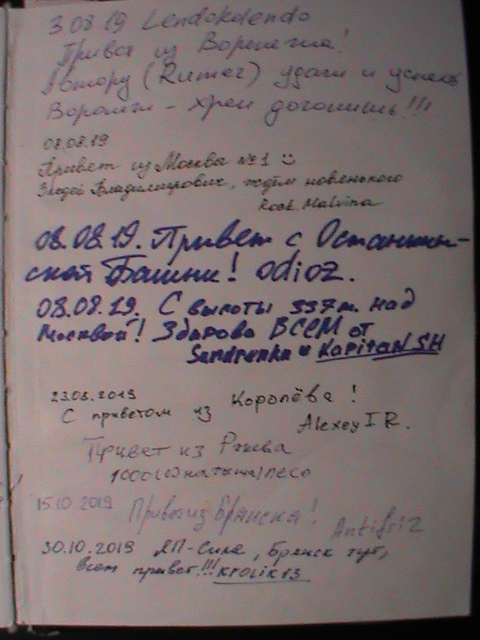 3.08.19 Lendokdendo
Привет из Воронежа!
Автору (Rumer) удачи и успеха
Воронеж - хрен догонишь!!!
08.08.19
Привет из Москвы №1
Злодей Владимирович, ждём новенького
Rock Malvina
08.08.19. Привет с Останкин-
ской Башни! odioz.
08.08.19. С высоты 337м. над
Москвой! Здарова ВСЕМ от
Sandrunka и KapitaN SH
23.08.2019
С приветом из Королёва!
Alexey I R.
Привет из Ржева
1000
15.10.2019 Привет из Брянска! Antifriz
30.10.2019 ЯП-Сила, Брянск тут,
всем привет!!! Krolik13